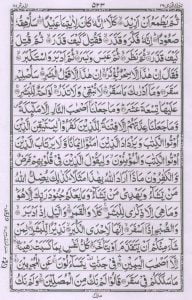 ۵۲۳
ثُمَّ يَطْمَعُ اَنْ اَزِيْدَ كَلَّا اِنَّهٗ كَانَ لِاٰيٰتِنَا عَنِيْدًا سَاُرْهِقُهٗ
صَعُوْدًا اِنَّهٗ فَكَّرَ وَقَدَّرَ فَقُتِلَ كَيْفَ قَدَّرَ ثُمَّ قُتِلَ كَيْفَ
قَدَّرَ ثُمَّ نَظَرَ ثُمَّ عَبَسَ وَبَسَرَ ثُمَّ اَدْبَرَ وَاسْتَكْبَرَ
فَقَالَ اِنْ هٰذَا اِلَّا سِحْرٌ يُّؤْثَرُ اِنْ هٰذَا اِلَّا قَوْلُ الْبَشَرِ سَاُصْلِيْهِ
سَقَرَ وَمَا اَدْرٰىكَ مَا سَقَرُ لَا تُبْقِيْ وَلَا تَذَرُ لَوَّاحَةٌ لِّلْبَشَرِ
عَلَيْهَا تِسْعَةَ عَشَرَ وَمَا جَعَلْنَا اَصْحٰبَ النَّارِ اِلَّا مَلٰٓئِكَةً
وَّمَا جَعَلْنَا عِدَّتَهُمْ اِلَّا فِتْنَةً لِّلَّذِيْنَ كَفَرُوْا لِيَسْتَيْقِنَ الَّذِيْنَ
اُوْتُوا الْكِتٰبَ وَيَزْدَادَ الَّذِيْنَ اٰمَنُوْا اِيْمَانًا وَّلَا يَرْتَابَ الَّذِيْنَ
اُوْتُوا الْكِتٰبَ وَالْمُؤْمِنُوْنَ وَلِيَقُوْلَ الَّذِيْنَ فِيْ قُلُوْبِهِمْ مَّرَضٌ
وَّالْكٰفِرُوْنَ مَاذَا اَرَادَ اللّٰهُ بِهٰذَا مَثَلًا كَذٰلِكَ يُضِلُّ اللّٰهُ
مَنْ يَّشَآءُ وَيَهْدِيْ مَنْ يَّشَآءُ وَمَا يَعْلَمُ جُنُوْدَ رَبِّكَ اِلَّا هُوَ
وَمَا هِيَ اِلَّا ذِكْرٰى لِلْبَشَرِ كَلَّا وَالْقَمَرِ وَالَّيْلِ اِذْ اَدْبَرَ
وَالصُّبْحِ اِذَا اَسْفَرَ اِنَّهَا لَاِحْدَى الْكُبَرِ نَذِيْرًا لِّلْبَشَرِ لِمَنْ
شَآءَ مِنْكُمْ اَنْ يَّتَقَدَّمَ اَوْ يَتَاَخَّرَ كُلُّ نَفْسٍ بِمَا كَسَبَتْ رَهِيْنَةٌ
اِلَّا اَصْحٰبَ الْيَمِيْنِ فِيْ جَنّٰتٍ يَتَسَآءَلُوْنَ عَنِ الْمُجْرِمِيْنَ
مَا سَلَكَكُمْ فِيْ سَقَرَ قَالُوْا لَمْ نَكُ مِنَ الْمُصَلِّيْنَ وَلَمْ نَكُ